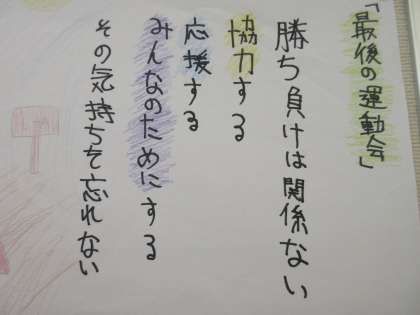 「最後の運動会」
勝ち負けは関係ない
協力する
応援する
みんなのためにする
その気持ちを忘れない